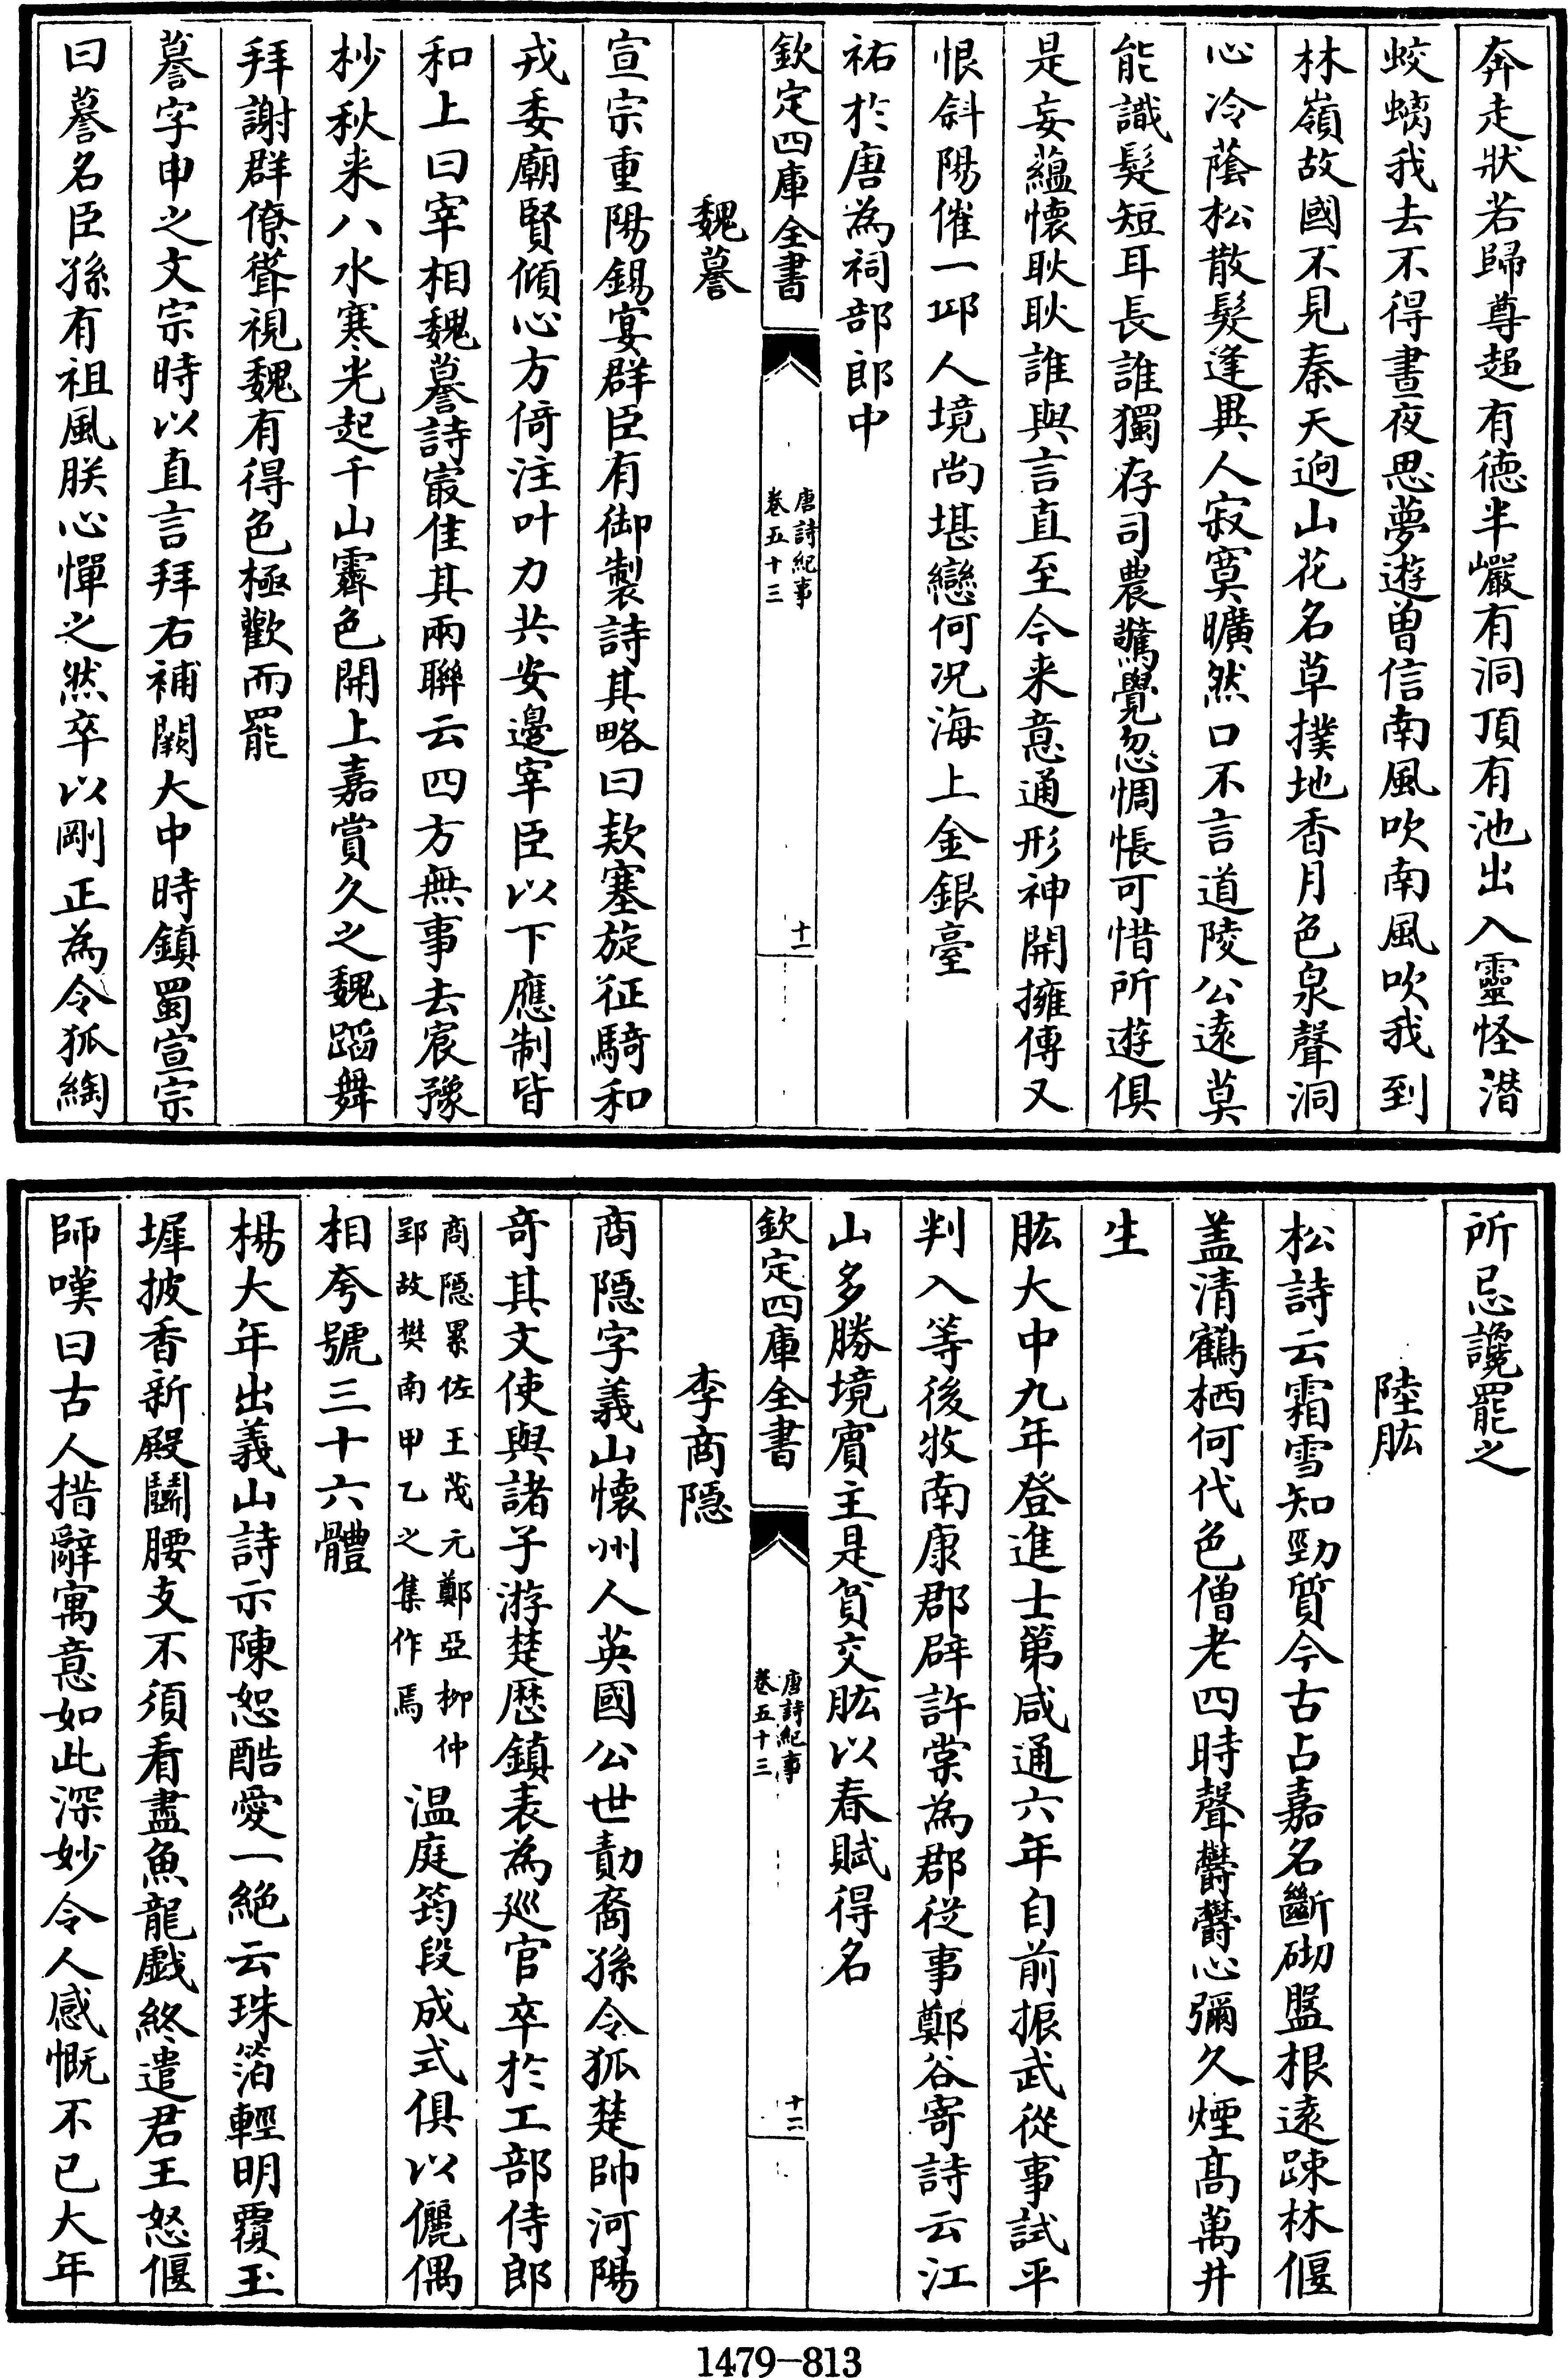 奔走狀若歸尊趄有德半巖有洞頂有池出入靈怪潛
蛟螭我去不得晝夜思夢遊曾信南風吹南風吹我到
林嶺故國不見秦天逈山花名草撲地香月色泉聲洞
心冷蔭松散髮逢異人寂寞曠然口不言道陵公逺莫
能識髮短耳長誰獨存司農驚覺忽惆悵可惜所遊俱
是妄蘊懷耿耿誰與言直至今来意通形神開擁傳又
恨斜陽催一邱人境尚堪戀何况海上金銀臺
祐於唐為祠部郎中
欽定四庫全書
唐詩紀事
卷五十三
十一
魏謩
宣宗重陽錫宴群臣有御製詩其略曰欵塞旋征騎和
戎委廟賢傾心方倚注叶力共安邊宰臣以下應制皆
和上曰宰相魏謩詩最佳其兩聯云四方無事去宸豫
杪秋来八水寒光起千山霽色開上嘉賞久之魏蹈舞
拜謝群僚聳視魏有得色極歡而罷
謩字申之文宗時以直言拜右補闕大中時鎮蜀宣宗
曰謩名臣孫有祖風朕心憚之然卒以剛正為令狐綯
所忌讒罷之
陸肱
松詩云霜雪知勁質今古占嘉名斷砌盤根逺踈林偃
盖清鶴栖何代色僧老四時聲鬱鬱心彌久煙髙萬井
生
肱大中九年登進士第咸通六年自前振武從事試平
判入等後牧南康郡辟許棠為郡從事鄭谷寄詩云江
山多勝境賓主是貧交肱以春賦得名
欽定四庫全書
唐詩紀事
卷五十三
十二
李商隠
商隠字義山懷州人英國公世勣裔孫令狐楚帥河陽
奇其文使與諸子游楚厯鎮表為廵官卒於工部侍郎
商隠累佐王茂元鄭亞柳仲
郢故樊南甲乙之集作焉
温庭筠段成式俱以儷偶
相夸號三十六體
楊大年出義山詩示陳恕酷愛一絶云珠箔輕明覆玉
墀披香新殿鬭腰支不須看盡魚龍戲終遣君王怒偃
師嘆曰古人措辭寓意如此深妙令人感慨不已大年
1479-813